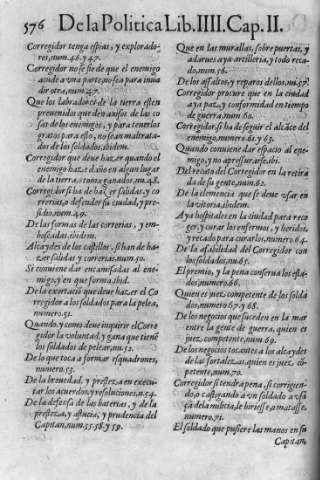 576 De la Politica Lib. IIII. Cap. II.
Corregidor tenga espias, y explorado-
res, num. 46. y 47.
Corregidor no se fie de que el enemigo
acude a vna parte, no sea para inua
dir otra, num. 47.
Que los labradores de la tierra esten
preuenidos que den auiso de las co
sas de los enemigos, y para tenerlos
gratos para esto, no sean maltrata-
dos de los soldados, ibidem.
Corregidor que deue hazer quando el
enemigo haze daño en algun lugar
de la tierra, o toma ganados, n. 48.
Corregidor si ha de hazer salidas, y co
rrerias, o defender su ciudad, y pre-
sidio, num. 49.
De las formas de las correrias, y em-
boscadas, ibidem.
Alcaydes de los castillos, si han de ha-
zer salidas y correrias, num. 50.
Si conuiene dar encamisadas al ene-
migo, y en que forma, ibid.
De la exortacio que deue hazer el Co
rregidor a los soldados para la pelea,
numero. 51.
Quando, y como deue inquirir el Corre
gidor la voluntad, y gana que tiene
los soldados de pelear, nu. 52.
De lo que toca a formar esquadrones,
numero. 53.
De la breuedad, y presteza en execu-
tar los acuerdos, y resoluciones, n. 54.
De la defensa de las baterias, y de la
presteza, y astucia, y prudencia del
Capitan, num. 55. 58. y 59.
Que en las murallas, sobre puertas, y
adarues aya artilleria, y todo reca-
do, num. 56.
De los assaltos, y reparos dellos, nu. 57.
Corregidor procure que en la ciudad
aya paz, y conformidad en tiempo
de guerra, num. 60.
Corregidor si ha de seguir el alcãce del
enemigo, numero. 61. y 63.
Quando conuiene dar espacio al ene-
migo, y no apressurarse, ibi.
Del recato del Corregidor en la retira
da de su gente, num. 62.
De la clemencia que se deue vsar en
la vitoria, ibidem.
Aya hospitales en la ciudad para reco
ger, y curar los enfermos, y heridos,
y recado para curarlos, numero. 64.
De la afabilidad del Corregidor con
los soldados, nu. 65.
El premio, y la pena conserua los esta-
dos, numero. 66.
Quien es juez competente de los solda
dos, numero. 67. y 68.
De los negocios que suceden en la mar
entre la gente de guerra, quien es
juez, competente, num. 69.
De los negocios tocantes a los alcaydes
de las fortalezas, quien es juez, cõ-
petente, num. 70.
Corregidor si tendra pena, si corrigien-
do, o castigando a vn soldado a vsã
ça de la milicia, le hiriesse, o matasse.
numero. 71.
El soldado que pusiere las manos en su
Capitan